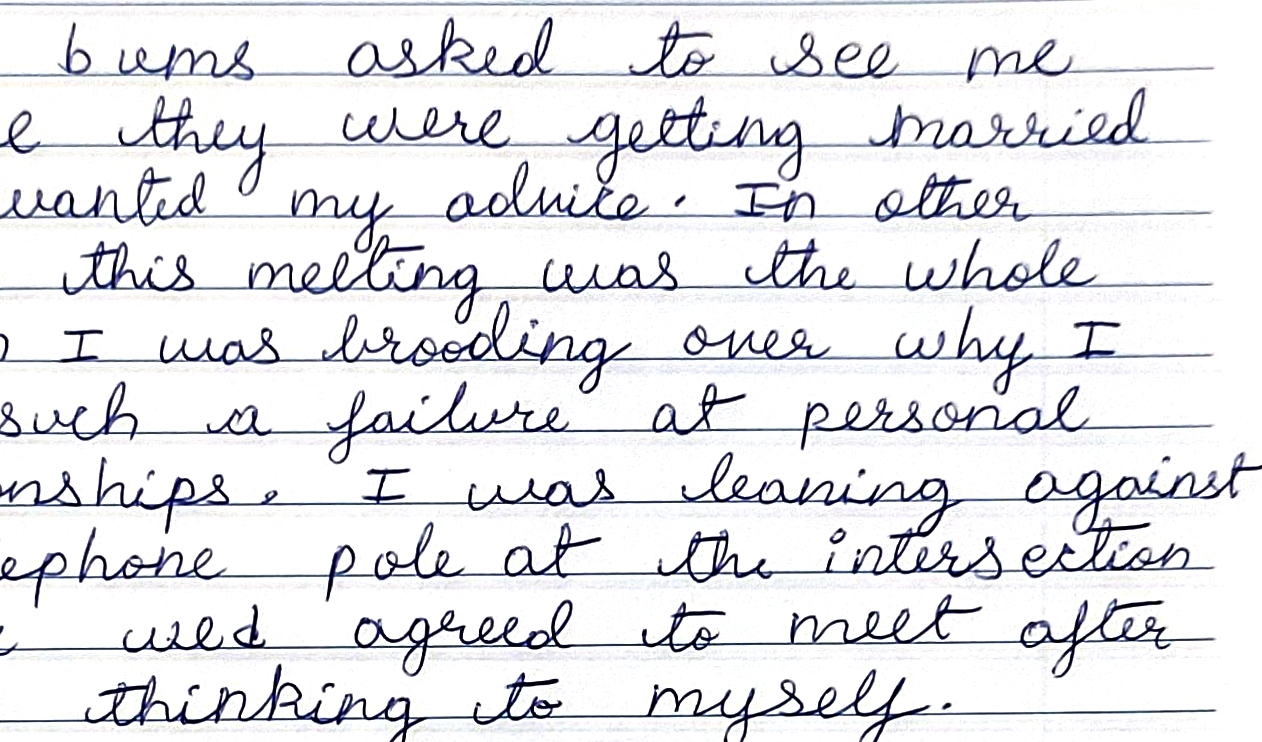 bums asked to see me
e they were getting married
wanted my advice. In other
this meeting was the whole
I was brooding over why I
such a failure at personal
onships. I was leaning against
ephone pole at the intersection
we'd agreed to meet after
thinking to myself.